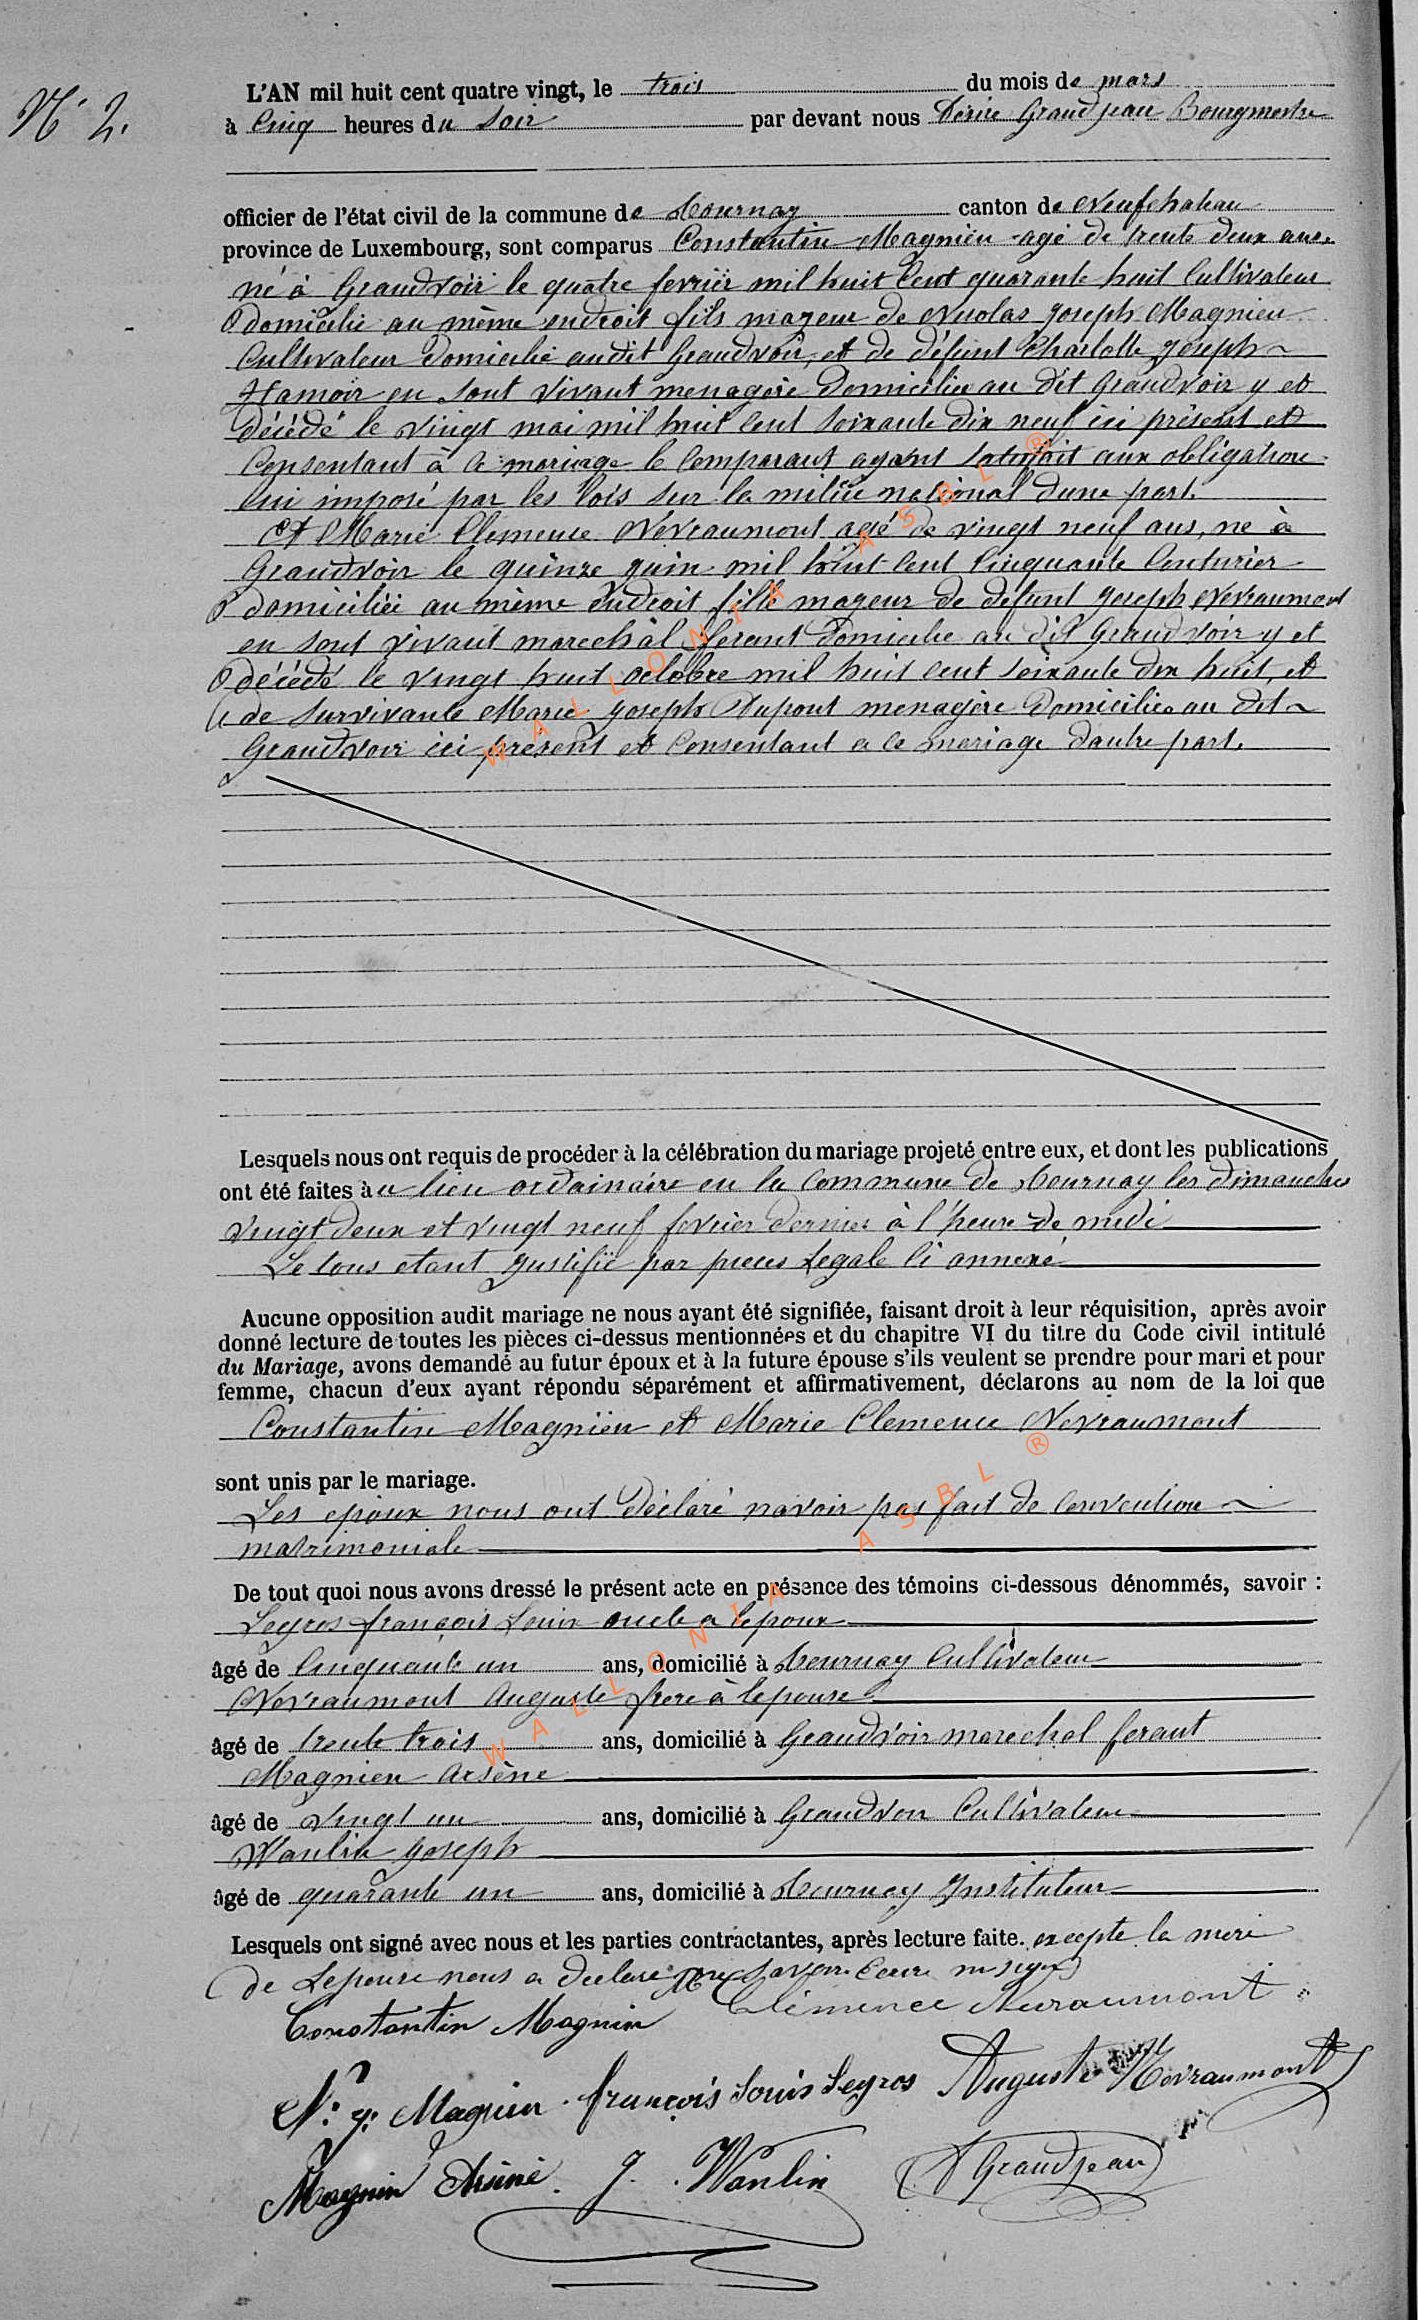 N° 2.
L'AN mil huit cent quatre vingt, le trois du mois de mars
à Cinq heures du Soir par devant nous Désiré Grandjean Bourgmestre
officier de l'état civil de la commune de Tournay canton de Neufchateau
province de Luxembourg, sont comparus Constantin Magnien agé de trente deux ans,
né à Grandvoir le quatre fevrier mil huit Cent quarante huit Cultivateur
domicilié au même endroit fils mageur de Nicolas Joseph Magnien
Cultivateur domicilié audit Grandvoir, et de défunt Charlotte Joseph
Hamoir en sont vivant menagère domiciliée au dit Grandvoir y et
décédé le vingt mai mil huit cent soixante dix neuf ici présent et
Consentant à ce mariage le Comparant ayant satisfait aux obligations
lui imposé par les lois sur la milice national dune part.
Et Marie Clemence Nevraumont agé de vingt neuf ans, né à
Grandvoir le quinze juin mil huit cent Cinquante Couturier
domiciliée au même Endroit fille mageur de defunt Joseph Nevraumont
en sont vivant marechal ferant domicilié au dit Grandvoir y et
décédé le vingt huit octobre mil huit cent soixante dix huit, et
de survivante Marie Joseph Dupont menagère domiciliée au dit
Grandvoir ici présent et Consentant a ce mariage dautre part.
Lesquels nous ont requis de procéder à la célébration du mariage projeté entre eux, et dont les publications
ont été faites au lieu ordainaire en la Commune de Tournay les dimanches
vingt deux et vingt neuf fevrier dernier à l'heure de midi
Le tous etant justifié par pieces Legale Ci annexé
Aucune opposition audit mariage ne nous ayant été signifiée, faisant droit à leur réquisition, après avoir
donné lecture de toutes les pièces ci-dessus mentionnées et du chapitre VI du titre du Code civil intitulé
du Mariage, avons demandé au futur époux et à la future épouse s'ils veulent se prendre pour mari et pour
femme, chacun d'eux ayant répondu séparément et affirmativement, déclarons au nom de la loi que
Constantin Magnien et Marie Clemence Nevraumont
sont unis par le mariage.
Les epoux nous ont déclaré navoir pas fait de Convention
matrimoniale
De tout quoi nous avons dressé le présent acte en présence des témoins ci-dessous dénommés, savoir :
Legros françois Louis oncle a lepoux
âgé de Cinquante un ans, domicilié à Tournay Cultivateur
Nevraumont Auguste frere à lepouse
âgé de trente trois ans, domicilié à Grandvoir marechal ferant
Magnien Arsène
âgé de vingt un ans, domicilié à Grandvoir Cultivateur
Wanlin Joseph
âgé de quarante un ans, domicilié à Tournay Instituteur
Lesquels ont signé avec nous et les parties contractantes, après lecture faite. excepte la mere
de Lepouse nous a declaré ne savoir Ecrire ni signé
Constantin Magnien Clémence Nevraumont
N. J. Magnien françois Louis Legros Auguste Nevraumont
Magnien Arsène J. Wanlin D Grandjean
WALLONIA ASBL ®
WALLONIA ASBL ®